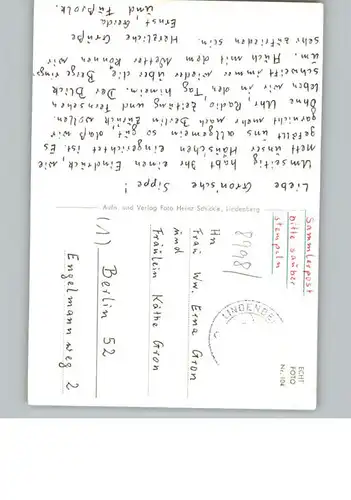 Liebe Gronische Sippe!
Umseitig habt Ihr einen Eindruck, wie
nett unser Häuschen eingerichtet ist. Es
gefällt uns allgemein so gut, daß wir
garnicht mehr nach Berlin zurück wollen.
Ohne Uhr, Radio, Zeitung und Fernsehen
leben wir in den Tag hinein. Der Blick
schweift immer wieder über die Berge rings-
um. Auch mit dem Wetter können wir
sehr zufrieden sein.
Herzliche Grüße
Ernst, Gerda
und Fußvolk.
Aufn. und Verlag Foto Heinz Schlöck, Lindenberg
Sammlerpost
bitte sauber
stempeln
8998/
LINDENBE
An
Frau Ww. Erna Gron
und
Fräulein Käthe Gron
(1) Berlin 52
Engelmannweg 2
ECHT
FOTO
Nr. 104